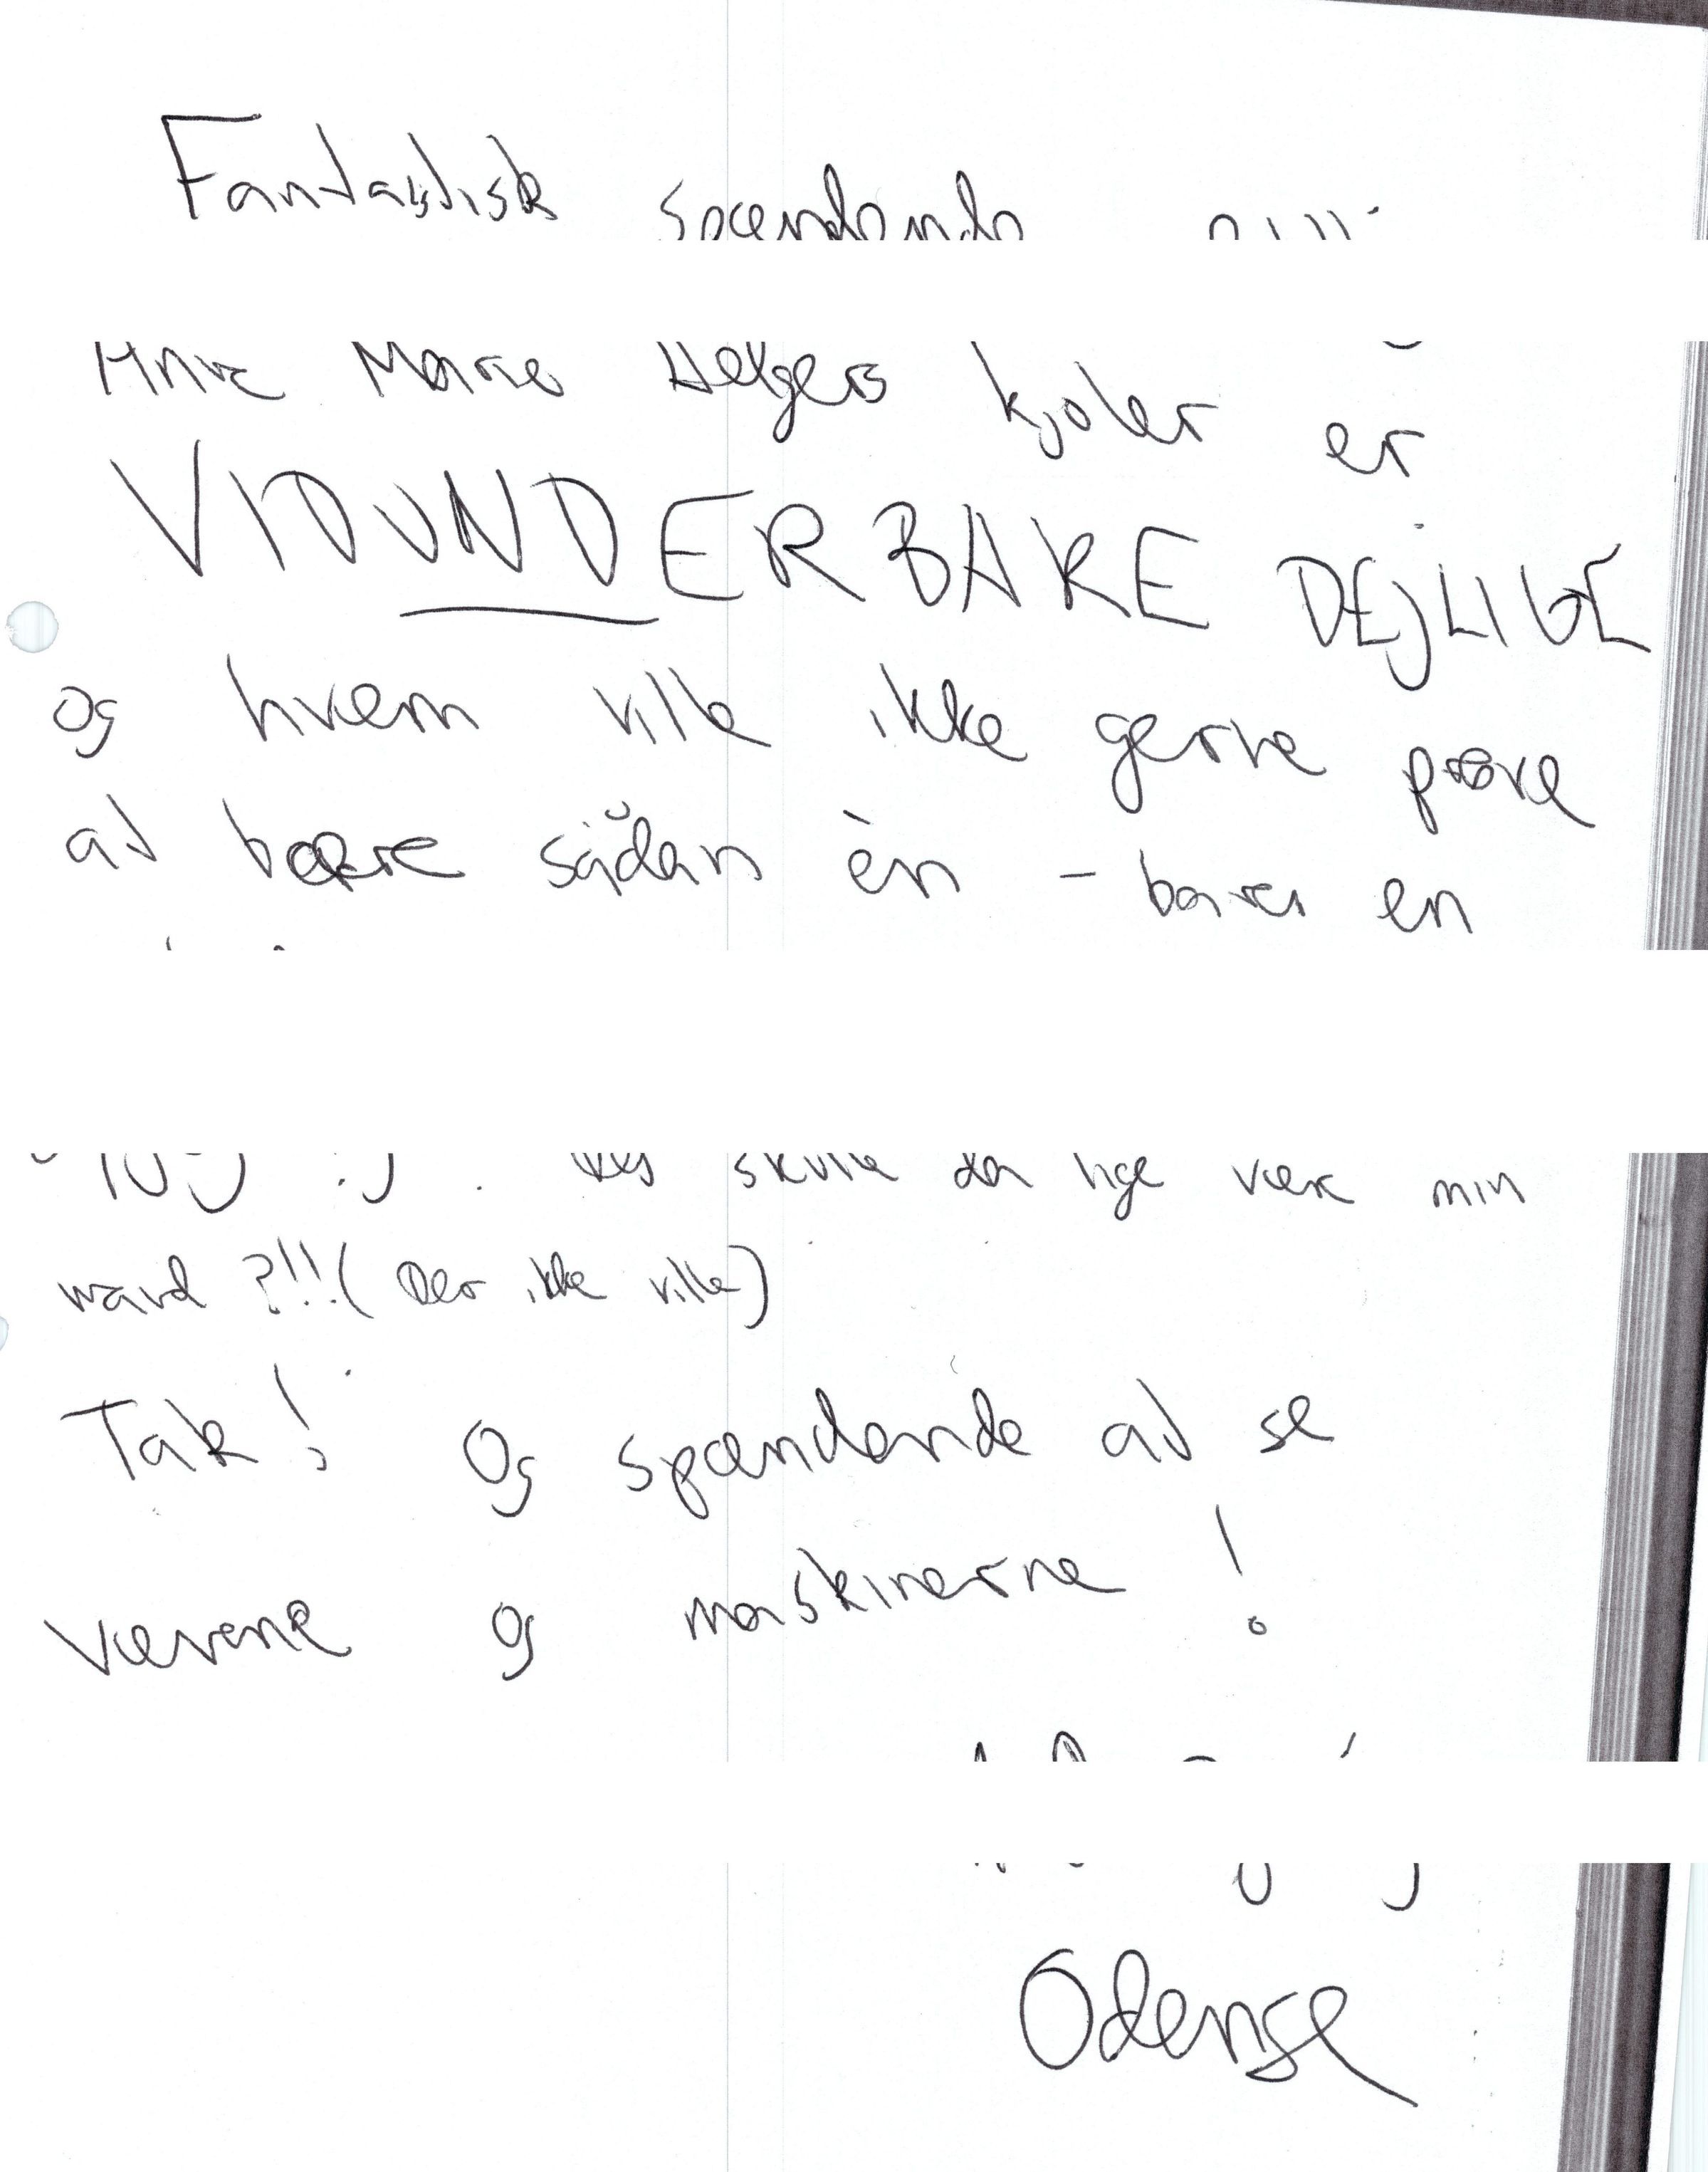 Fantastisk spændende
Anne Marie Helgers kjoler er
VIDUNDERBARE DEJLIGE
og hvem ville ikke gerne prøve
at bære sådan èn - bare en
skulle da lige være min
mand ?!!! ( Der ikke ville)
Tak! Og spændende at se
vævene og maskinerne !
Odense